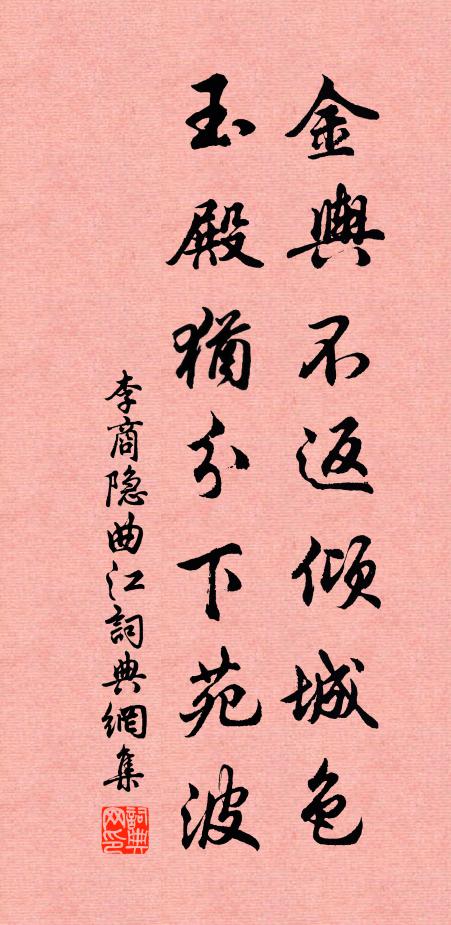 金輿不返傾城色
玉殿猶分下苑波
李商隐曲江詞典網集
詞典网印